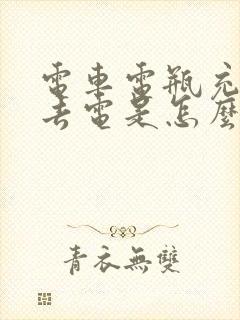 電車電瓶充
去電是怎麼
青衣無雙